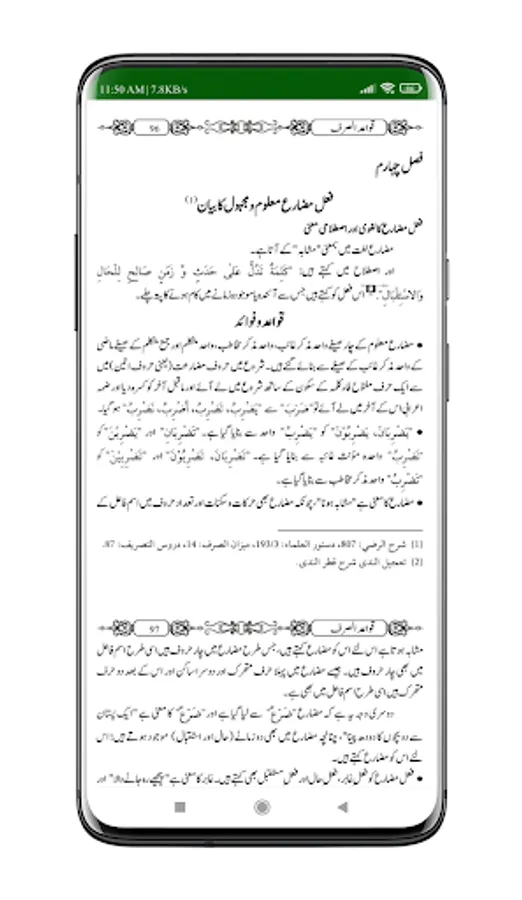 11:50 AM | 7.8KB/s
قواعد الصرف 96
فصل چہارم
فعل مضارع معلوم و مجہول کا بیان (1)
فعل مضارع کا لغوی اور اصطلاحی معنی
مضارع لغت میں بمعنی "مشابہ" کے آتا ہے۔
اور اصطلاح میں کہتے ہیں: "كَلِمَةٌ تَدُلُّ عَلَى حَدَثٍ وَّ زَمَنٍ صَالِحٍ لِلْحَالِ
وَالاسْتِقْبَالِ". اس فعل کو کہتے ہیں جس سے آئندہ یا موجودہ زمانے میں کام ہونے کا پتہ چلے۔
قواعد و فوائد
• مضارع معلوم کے چار صیغے واحد مذکر غائب، واحد مذکر مخاطب، واحد متکلم اور جمع متکلم کے صیغے ماضی
کے واحد مذکر غائب کے صیغے سے بنائے گئے ہیں۔ شروع میں حروف مضارعت (یعنی حروف اتین) میں
سے ایک حرف مفتاح فا کلمہ کے سکون کے ساتھ شروع میں لے آئے اور ماقبل آخر کو کسرہ دیا اور ضمہ
اعرابی اس کے آخر میں لے آئے تو "ضَرَبَ" سے "يَضْرِبُ، تَضْرِبُ، أَضْرِبُ، نَضْرِبُ" ہو گیا۔
• "يَضْرِبَانِ، يَضْرِبُوْنَ" کو "يَضْرِبُ" واحد سے بنایا گیا ہے۔ "تَضْرِبَانِ" اور "يَضْرِبْنَ" کو
"تَضْرِبُ" واحدہ مؤنث غائبہ سے بنایا گیا ہے۔ "تَضْرِبَانِ، تَضْرِبُوْنَ" اور "تَضْرِبِيْنَ" کو
"تَضْرِبُ" واحد مذکر مخاطب سے بنایا گیا ہے۔
• مضارع کا معنی ہے "مشابہ ہونا"، چونکہ مضارع بھی حرکات و سکنات اور تعداد حروف میں اسم فاعل کے
(1) شرح الرضي: 807، دستور العلماء: 193/3، ميزان الصرف: 14، دروس التصريف: 87.
(2) تعجيل الندى شرح قطر الندى.
قواعد الصرف 97
مشابہ ہوتا ہے اس لئے اس کو مضارع کہتے ہیں، جس طرح مضارع میں چار حروف ہیں اسی طرح اسم فاعل
میں بھی چار حروف ہیں۔ جیسے مضارع میں پہلا حرف متحرک اور دوسرا ساکن اور اس کے بعد دو حرف
متحرک ہیں اسی طرح اسم فاعل میں بھی ہے۔
دوسری وجہ یہ ہے کہ مضارع "ضَرْعٌ" سے لیا گیا ہے اور "ضَرْعٌ" کا معنی ہے "ایک پستان
سے دو بچوں کا دودھ پینا"، چنانچہ مضارع میں بھی دو زمانے (حال اور استقبال) موجود ہوتے ہیں؛ اس لئے
اس کو مضارع کہتے ہیں۔
• فعل مضارع کو فعل غابر، فعل حال اور فعل مستقبل بھی کہتے ہیں۔ غابر کا معنی ہے "پیچھے رہ جانے والا" اور